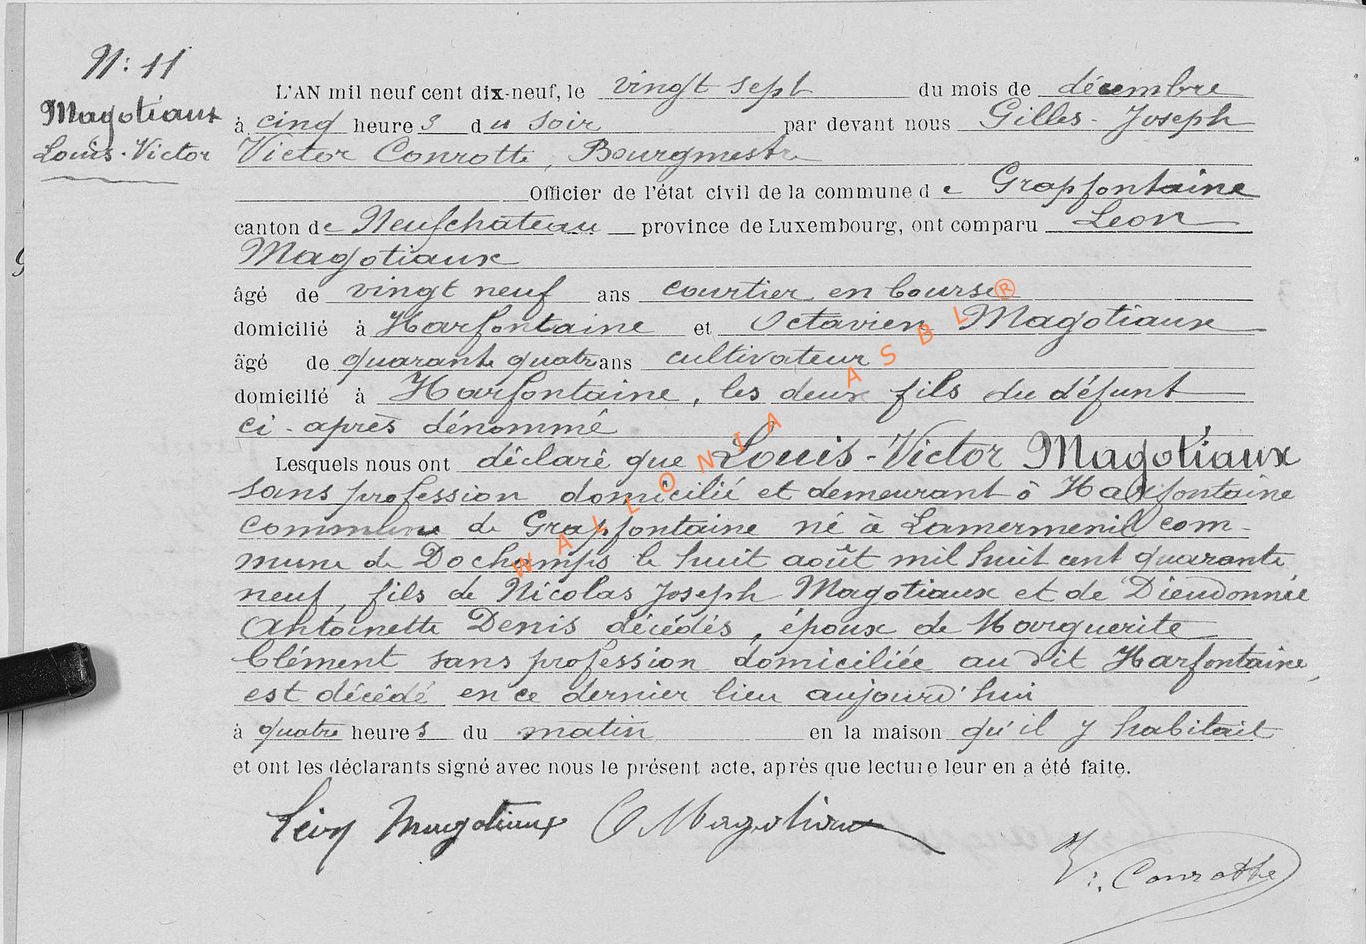 N: 11
Magotiaux
Louis-Victor
L'AN mil neuf cent dix-neuf, le vingt sept du mois de décembre
à cinq heures du soir par devant nous Gilles-Joseph
Victor Conrotte, Bourgmestre
Officier de l'état civil de la commune de Grapfontaine
canton de Neufchateau province de Luxembourg, ont comparu Leon
Magotiaux
âgé de vingt neuf ans courtier en bourse
domicilié à Harfontaine et Octavien Magotiaux
âgé de quarante quatre ans cultivateur
domicilié à Harfontaine, les deux fils du défunt
ci-après dénommé
Lesquels nous ont déclaré que Louis-Victor Magotiaux
sans profession domicilié et demeurant à Harfontaine
commune de Grapfontaine né à Lamermenil com-
mune de Dochamps le huit août mil huit cent quarante
neuf fils de Nicolas Joseph Magotiaux et de Dieudonnée
Antoinette Denis décédés, époux de Marguerite
Clément sans profession domiciliée au dit Harfontaine,
est décédé en ce dernier lieu aujourd'hui
à quatre heures du matin en la maison qu'il y habitait
et ont les déclarants signé avec nous le présent acte, après que lecture leur en a été faite.
Léon Magotiaux O Magotiaux
V. Conrotte
WALLONIA ASBL ®